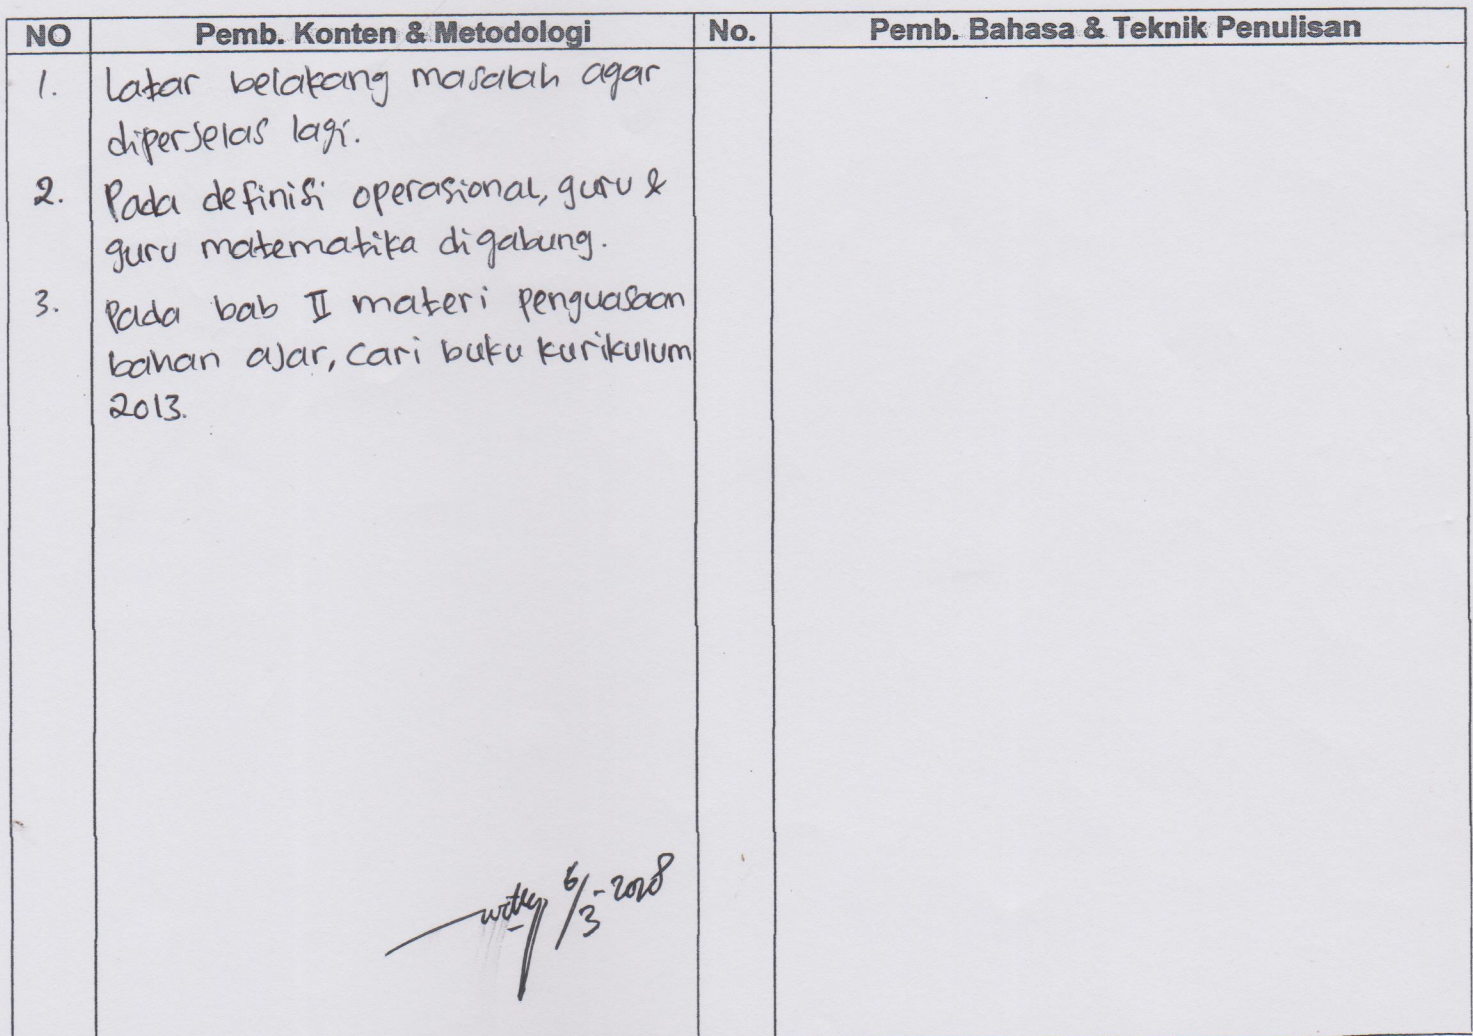 NO Pemb. Konten & Metodologi No. Pemb. Bahasa & Teknik Penulisan
1. Latar belakang masalah agar
diperjelas lagi.
2. Pada definisi operasional, guru &
guru matematika digabung.
3. Pada bab II materi penguasaan
bahan ajar, cari buku kurikulum
2013.
6/3-2018